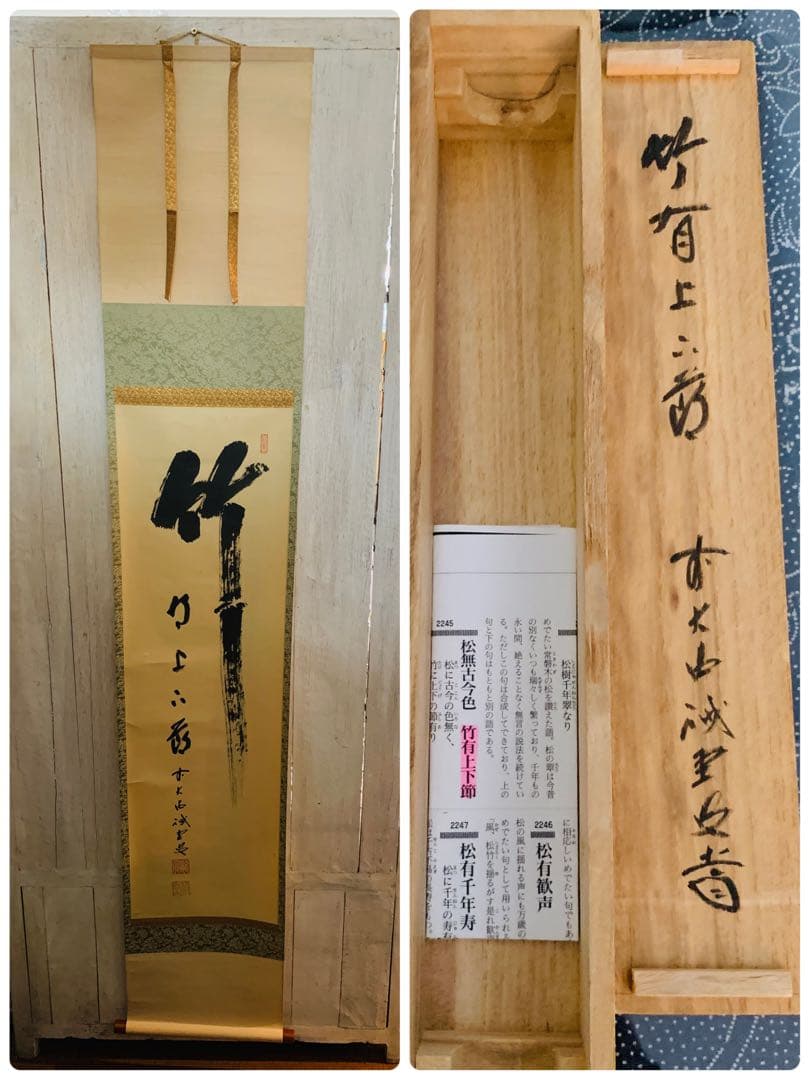 竹
有上下節
竹有上下節
松樹千年翠なり
めでたい常磐木の松を讃えた語。松の翠は今昔
の別なくいつも瑞々しく繁っており、千年もの
永い間、絶えることなく無言の説法を続けてい
る。ただしこの句は合成してできており、上の
句と下の句はもともと別の語である。
2245
松無古今色 竹有上下節
松に古今の色無く、
竹に上下の節有り
に相応しいめでたい句でもあ
2246
松有歓声
松の風に揺れる声にも万歳の
めでたい句として用いられる
「風、松竹を揺るがす是れ歓
2247
松有千年寿
松に千年の寿有